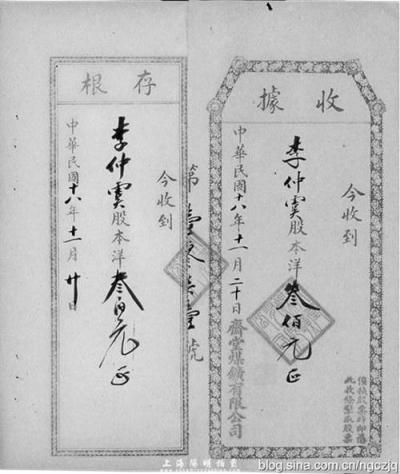 收據
今收到
李仲股本洋叁佰元正
中華民國十八年十一月二十日
齋堂煤鑛有限公司
第壹柒壹號
存根
今收到
李仲股本洋叁百元正
中華民國十八年十一月廿日
上海陽明拍賣
blog.sina.com.cn/ngczjq